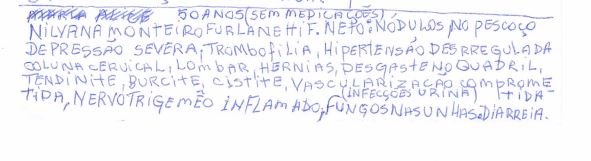 50 ANOS (SEM MEDICAÇÕES)
NILVANA MONTEIRO FURLANETTI F. NETO: NÓDULOS NO PESCOÇO
DEPRESSÃO SEVERA, TROMBOFILIA, HIPERTENSÃO DESRREGULADA
COLUNA CERVICAL, LOMBAR, HERNIAS, DESGASTE NO QUADRIL,
TENDINITE, BURCITE, CISTITE, VASCULARIZAÇÃO COMPROME
(INFECÇÕES URINA) TIDA-
TIDA, NERVO TRIGEMÊO INFLAMADO, FUNGOS NAS UNHAS. DIARREIA.